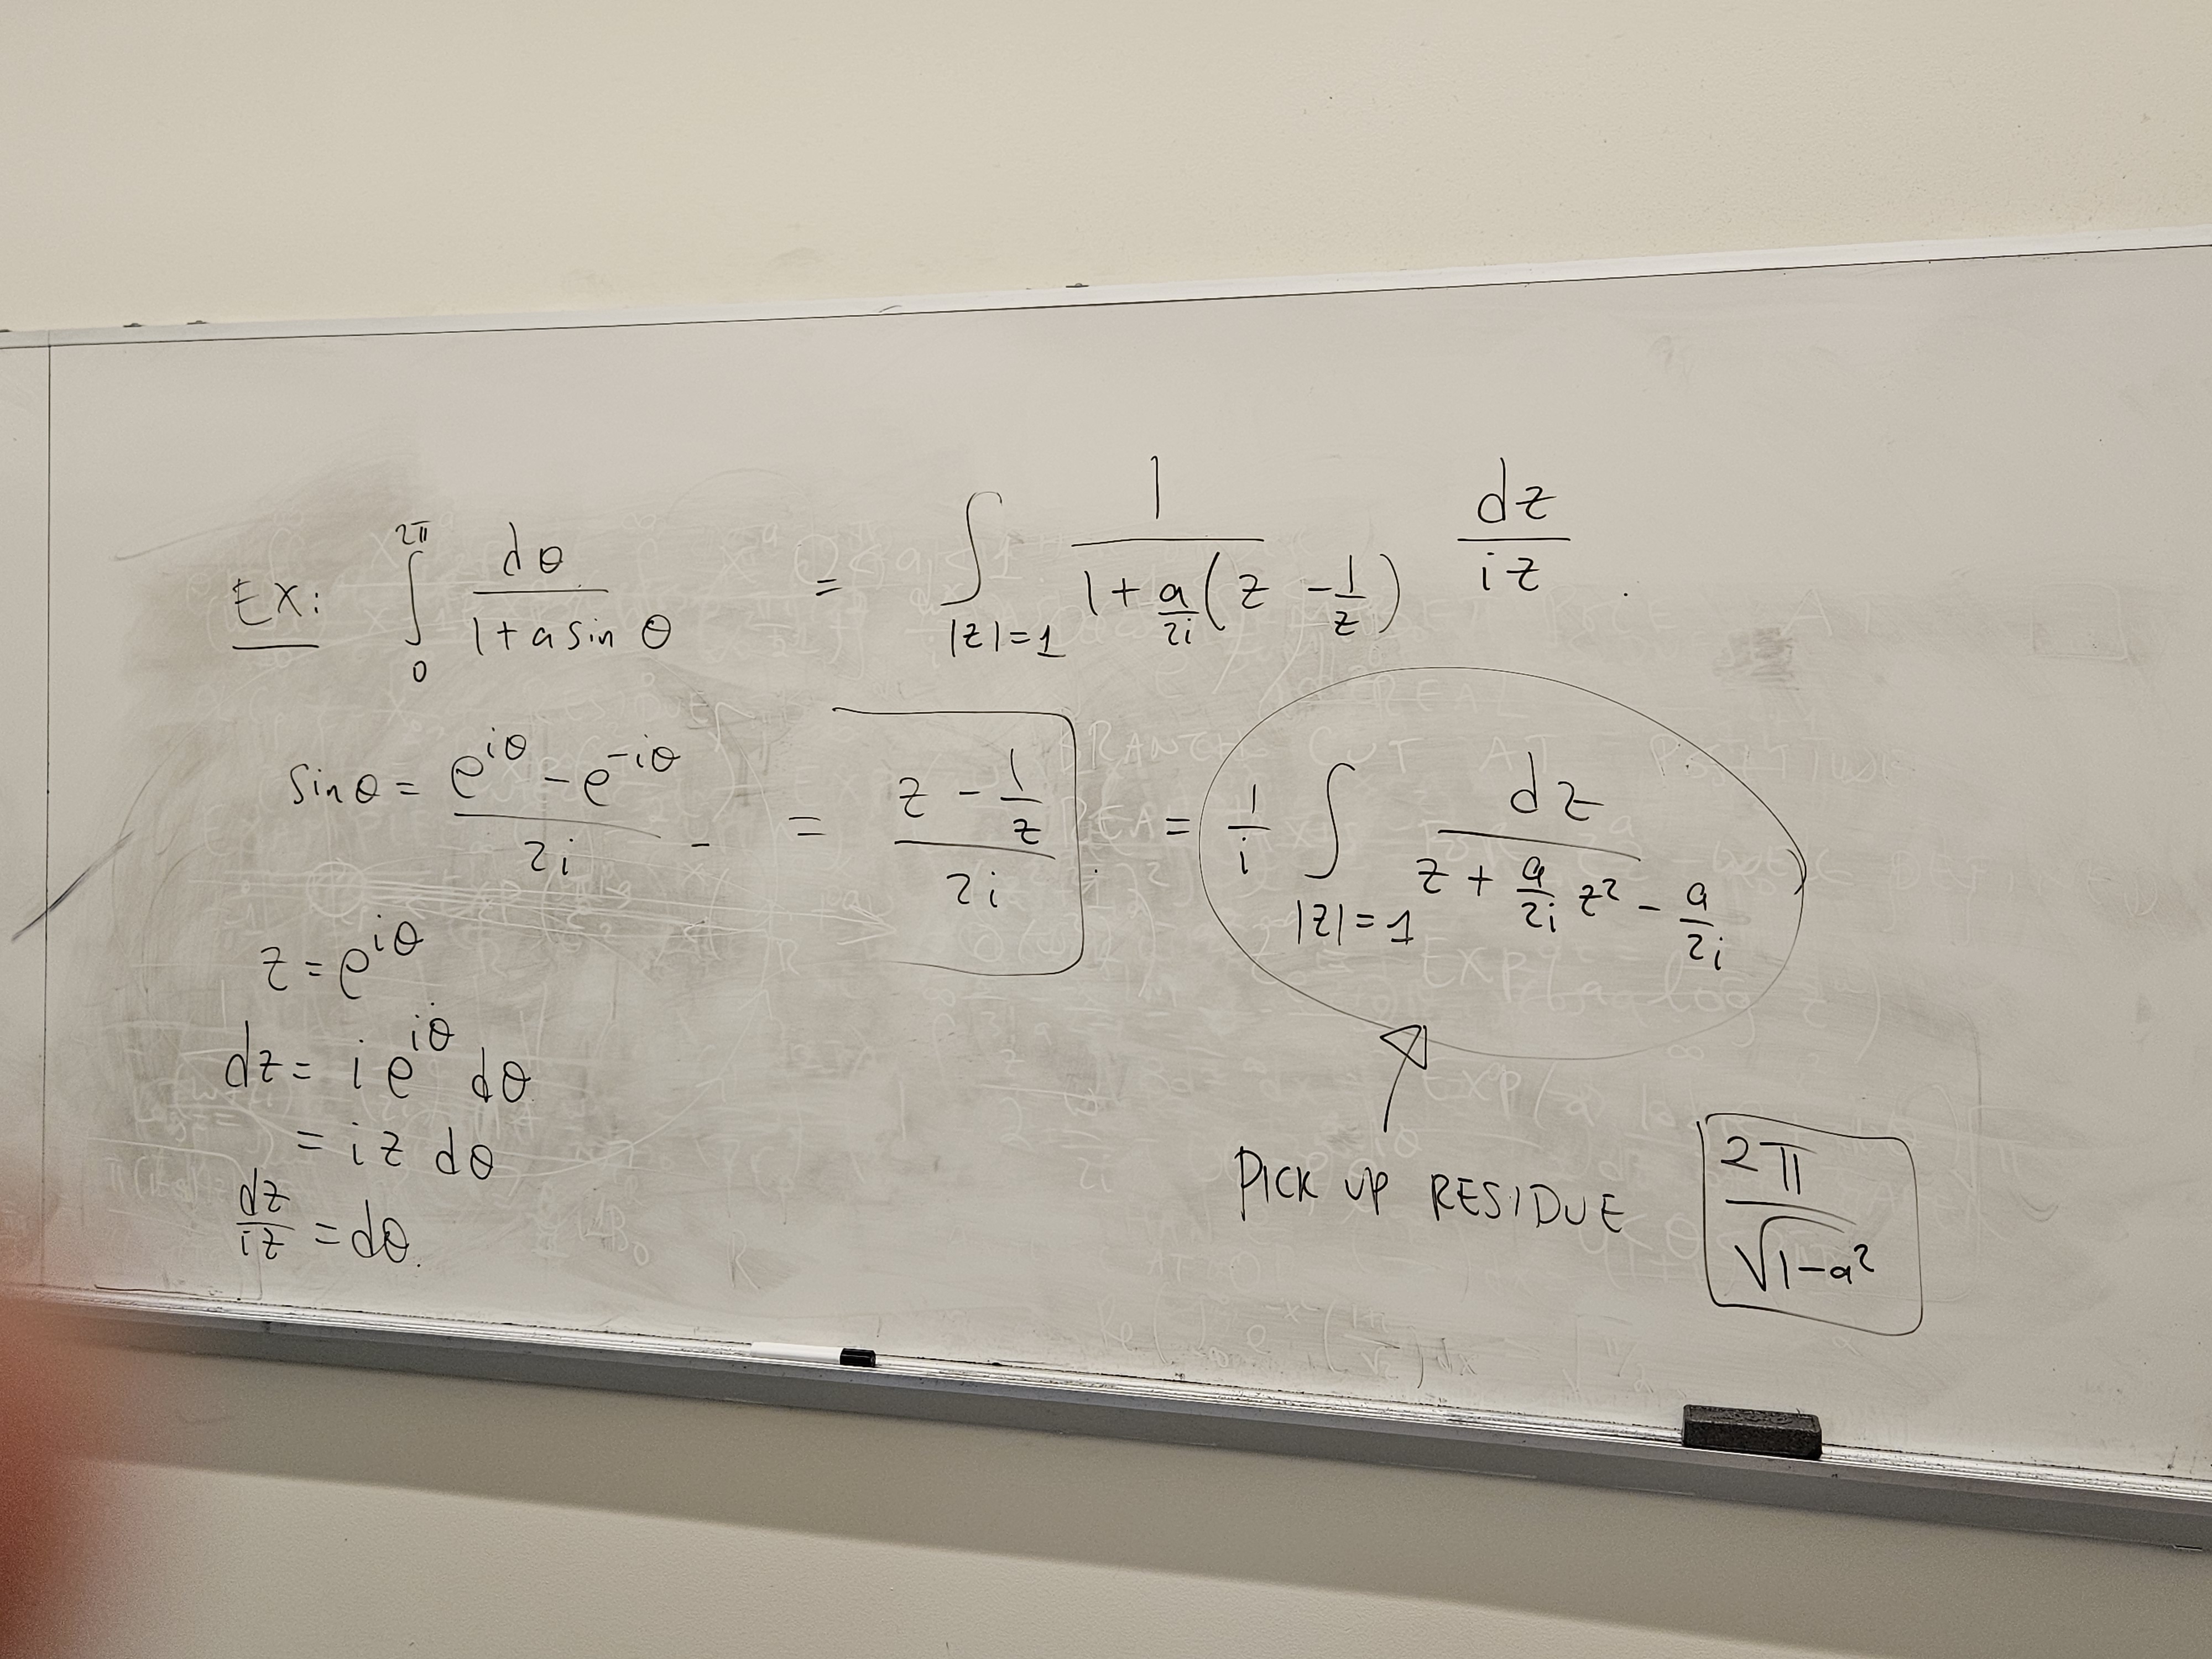 EX: ∫_0^{2π} dθ/(1+a sin θ) = ∫_{|z|=1} 1/(1+a/2i(z - 1/z)) dz/iz .
sin θ = (e^{iθ} - e^{-iθ})/2i = (z - 1/z)/2i
= 1/i ∫_{|z|=1} dz/(z + a/2i z² - a/2i)
z = e^{iθ}
dz = i e^{iθ} dθ
= i z dθ
dz/iz = dθ.
PICK UP RESIDUE 2π/√(1-a²)